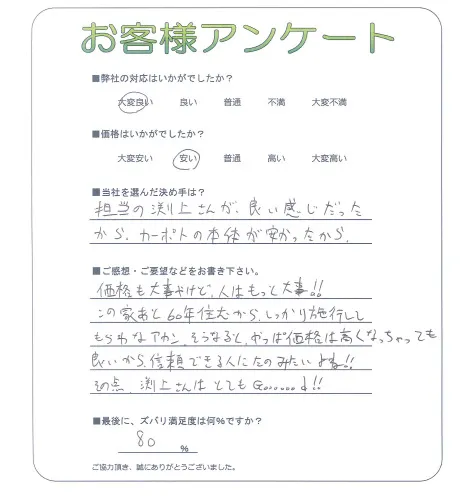 お客様アンケート
■弊社の対応はいかがでしたか?
大変良い 良い 普通 不満 大変不満
■価格はいかがでしたか?
大変安い 安い 普通 高い 大変高い
■当社を選んだ決め手は?
担当の渕上さんが、良い感じだった
から、カーポトの本体が安かったから、
■ご感想・ご要望などをお書き下さい。
価格も大事やけど、人はもっと大事!!
この家あと60年住むから、しっかり施行して
もらわなアカン、そうなると、やっぱ価格は高くなっちゃっても
良いから、信頼できる人にたのみたいよね!!
その点、渕上さんは とても Goooooood!!
■最後に、ズバリ満足度は何%ですか?
80 %
ご協力頂き、誠にありがとうございました。